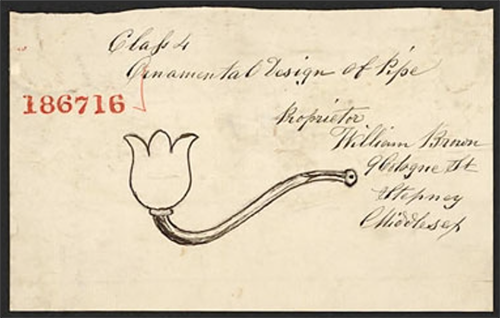 Class 4
Ornamental Design of Pipe
186716
Proprietor
William Brown
9 Cologne St
Stepney
Middlesex